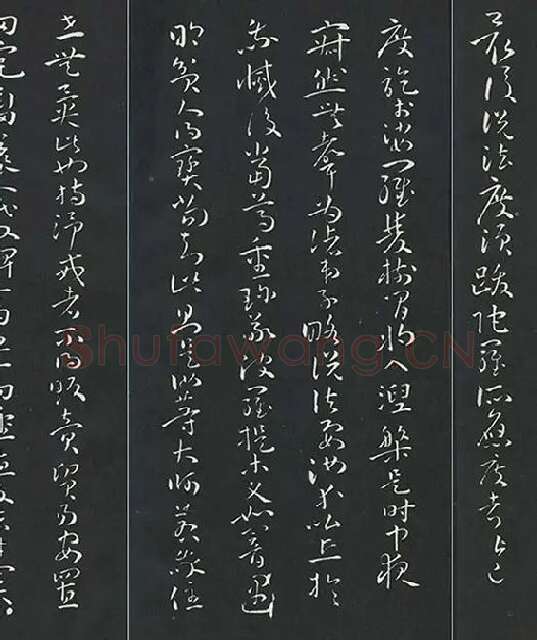 最後說法度須跋陀羅所應度者皆已
度訖於娑羅雙樹間將入涅槃是時中夜
寂然無聲為諸弟子略說法要汝等比丘於
我滅後當尊重珍敬波羅提木叉如暗遇
明貧人得寶當知此則是汝等大師若我住
世無異此也持淨戒者不得販賣貿易安置
田宅畜養人
Shufawang.CN